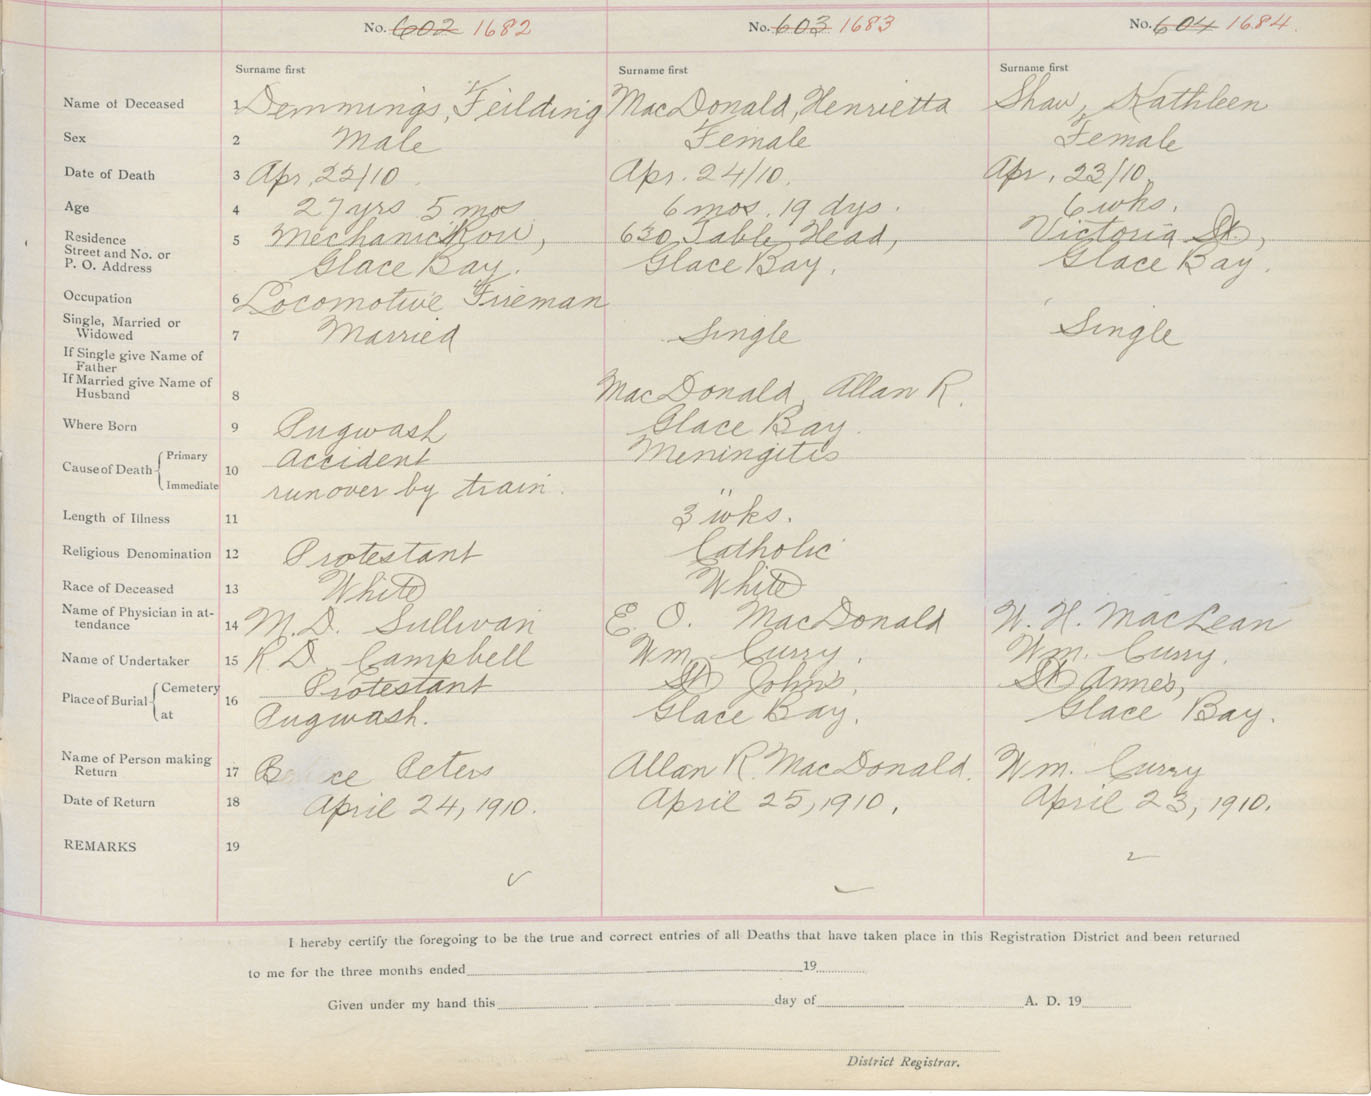 No. 602 1682 No. 603 1683 No. 604 1684.
Surname first Surname first Surname first
Name of Deceased 1 Demmings, Feilding MacDonald, Henrietta Shaw, Kathleen
Sex 2 Male Female Female
Date of Death 3 Apr. 22/10 Apr. 24/10. Apr. 23/10.
Age 4 27 yrs 5 mos 6 mos. 19 dys. 6 wks.
Residence 5 Mechanics Row, 630, Table Head, Victoria St.,
Street and No. or
P. O. Address Glace Bay. Glace Bay. Glace Bay.
Occupation 6 Locomotive Fireman
Single, Married or
Widowed 7 Married Single Single
If Single give Name of
Father
If Married give Name of
Husband 8 MacDonald, Allan R.
Where Born 9 Pugwash Glace Bay.
Cause of Death Primary 10 Accident Meningitis
Immediate runover by train.
Length of Illness 11 3 wks.
Religious Denomination 12 Protestant Catholic
Race of Deceased 13 White White
Name of Physician in at-
tendance 14 M. D. Sullivan E. O. MacDonald W. H. MacLean
Name of Undertaker 15 R D. Campbell Wm. Curry. Wm. Curry.
Place of Burial Cemetery 16 Protestant St John's, St Anne's,
at Pugwash. Glace Bay. Glace Bay.
Name of Person making
Return 17 Peters Allan R. MacDonald. Wm. Curry
Date of Return 18 April 24, 1910. April 25, 1910. April 23, 1910.
REMARKS 19
I hereby certify the foregoing to be the true and correct entries of all Deaths that have taken place in this Registration District and been returned
to me for the three months ended 19
Given under my hand this day of A. D. 19
District Registrar.